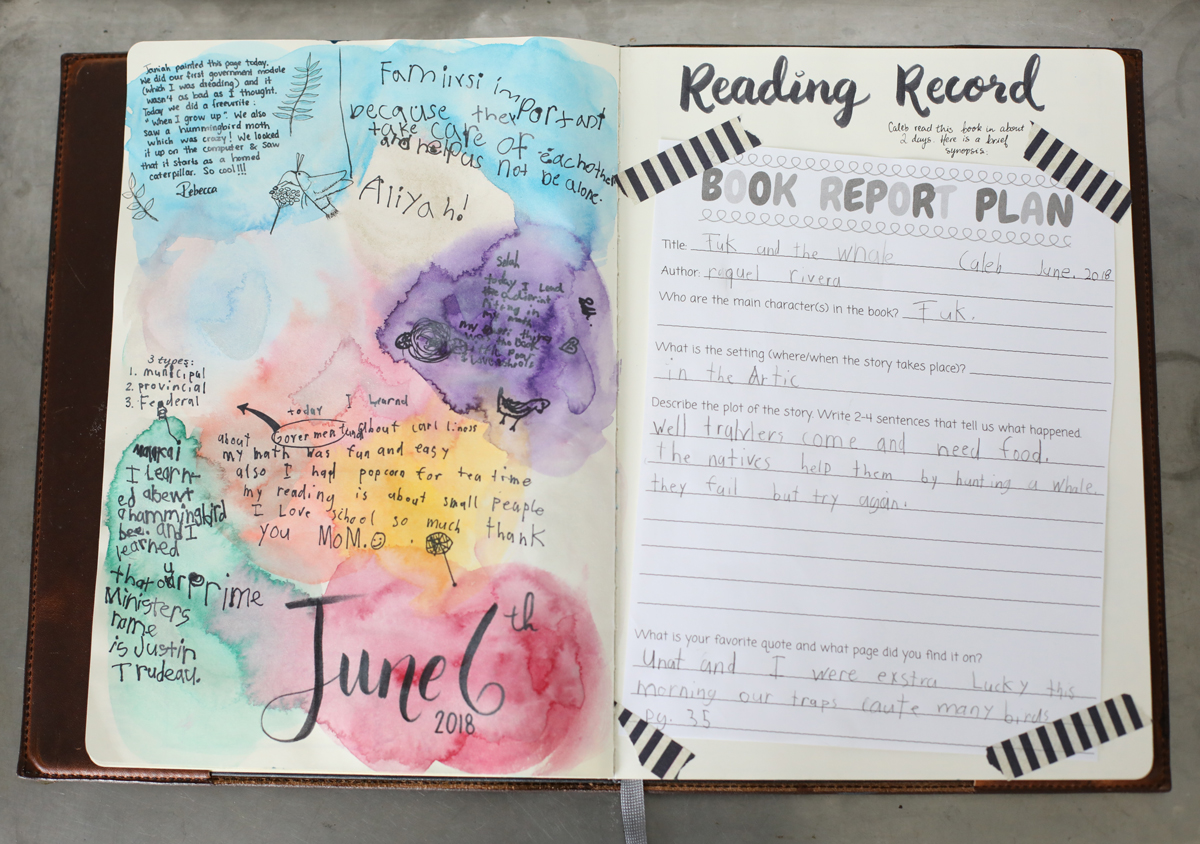 Janiah painted this page today.
We did our first government module
(which I was dreading) and it
wasn't as bad as I thought.
Today we did a freewrite:
"When I grow up". We also
saw a hummingbird moth
which was crazy! We looked
it up on the computer & saw
that it starts as a horned
caterpillar. So cool!!!
Rebecca
Famirsi important
because they
take care of eachother
and help us not be alone.
Aliyah!
Selah
today I
my
3 types:
1. municipal
2. provincial
3. Federal
today I Learnd
about Goverment and about carl liness
my math was fun and easy
also I had popcorn for tea time
my reading is about small peaple
I Love school so much thank
you MoM.
I learn-
ed abewt
a hammingbird
bee. and I
learned
that our Prime
Ministers
name
is Justin
Trudeau.
June 6th
2018
Reading Record
Caleb read this book in about
2 days. Here is a brief
synopsis.
BOOK REPORT PLAN
Title: Fuk and the whale Caleb June. 2018
Author: raquel rivera
Who are the main character(s) in the book? Fuk.
What is the setting (where/when the story takes place)?
in the Artic
Describe the plot of the story. Write 2-4 sentences that tell us what happened.
well tralvlers come and need food.
the natives help them by hunting a whale.
they fail but try again.
What is your favorite quote and what page did you find it on?
Unat and I were exstra Lucky this
morning our traps caute many birds
pg. 35